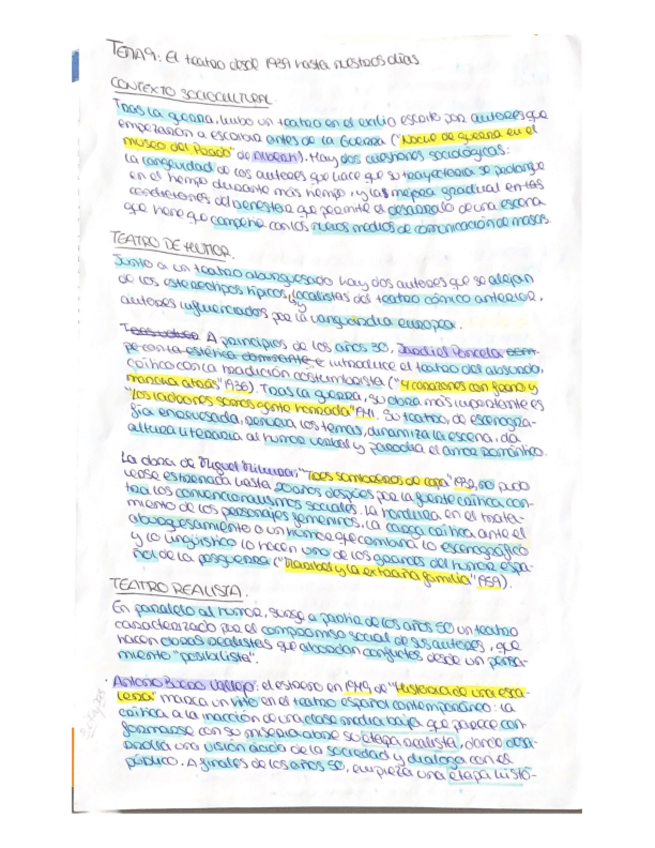 TEMA 9: El teatro desde 1939 hasta nuestros días
CONTEXTO SOCIOCULTURAL.
Tras la guerra, hubo un teatro en el exilio escrito por autores que
empezaron a escribir antes de la Guerra ("Noche de guerra en el
museo del Prado" de Alberti). Hay dos cuestiones sociológicas:
la longevidad de los autores que hace que su trayectoria se prolongue
en el tiempo durante más tiempo, y las mejora gradual en las
condiciones del bienestar que permite el desarrollo de una escena
que tiene que competir con los nuevos medios de comunicación de masas.
TEATRO DE HUMOR.
Junto a un teatro aburguesado hay dos autores que se alejan
de los estereotipos típicos, localistas del teatro cómico anterior,
y
autores influenciados por la vanguardia europea.
A principios de los años 30, Jardiel Poncela
pe con la estética dominante e introduce el teatro del absurdo,
crítico con la tradición costumbrista ("4 corazones con freno y
marcha atrás" 1936). Tras la guerra, su obra más importante es
"Los ladrones somos gente honrada" 1941. Su teatro, de escenogra-
fía enrevesada, renueva los temas, dinamiza la escena, da
altura literaria al humor verbal y parodia el amor romántico.
La obra de Miguel Mihura: "Tres sombreros de copa" 1932, no pudo
verse estrenada hasta 20 años después por la fuerte crítica con-
tra los convencionalismos sociales. La hondura en el trata-
miento de los personajes femeninos, la carga crítica ante el
aburguesamiento o un humor que combina lo escenográfico
y lo lingüístico lo hacen uno de los grandes del humor espa-
ñol de la posguerra ("Maribel y la extraña familia" 1959).
TEATRO REALISTA.
En paralelo al humor, surge a partir de los años 50 un teatro
caracterizado por el compromiso social de sus autores, que
hacen obras realistas que abordan conflictos desde un pensa-
miento "posibilista".
Antonio Buero Vallejo: el estreno en 1949, de "Historia de una esca-
lera" marca un hito en el teatro español contemporáneo: la
crítica a la inacción de una clase media baja que parece con-
formarse con su miseria abre su etapa realista, donde desa-
rrolla una visión ácida de la sociedad y dialoga con el
público. A finales de los años 50, empieza una etapa histó-